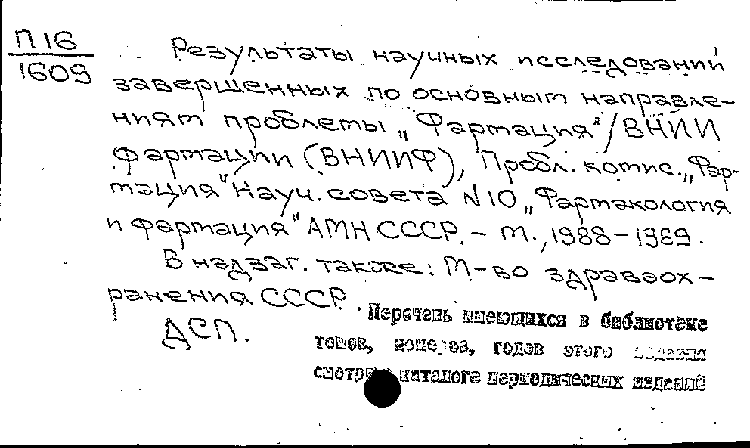 П16
1609
Результаты научных исследований
завершенных по основным направле-
ниям проблемы „Фармация"/ВНИИ
фармации (ВНИИФ), Пробл. комис. „Фар-
мация" Науч. совета N10 „Фармакология
и фармация" АМН СССР. – М., 1988–1989.
В надзаг. также: М-во здравоох-
ранения СССР.
ДСП.
Перечень имеющихся в библиотеке
томов, номеров, годов этого издания
смотри в каталоге периодических изданий